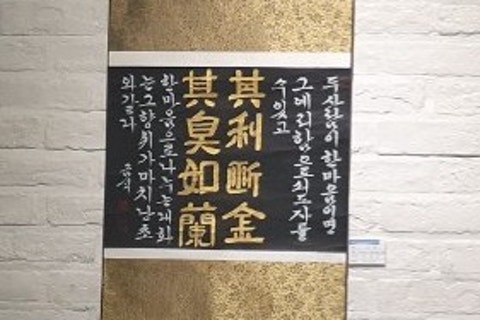 두사람이 한마음이면
그예리함으로쇠도자를
수있고
其利断金
其臭如蘭
한마음으로나누는대화
는그향취가마치난초
와같다